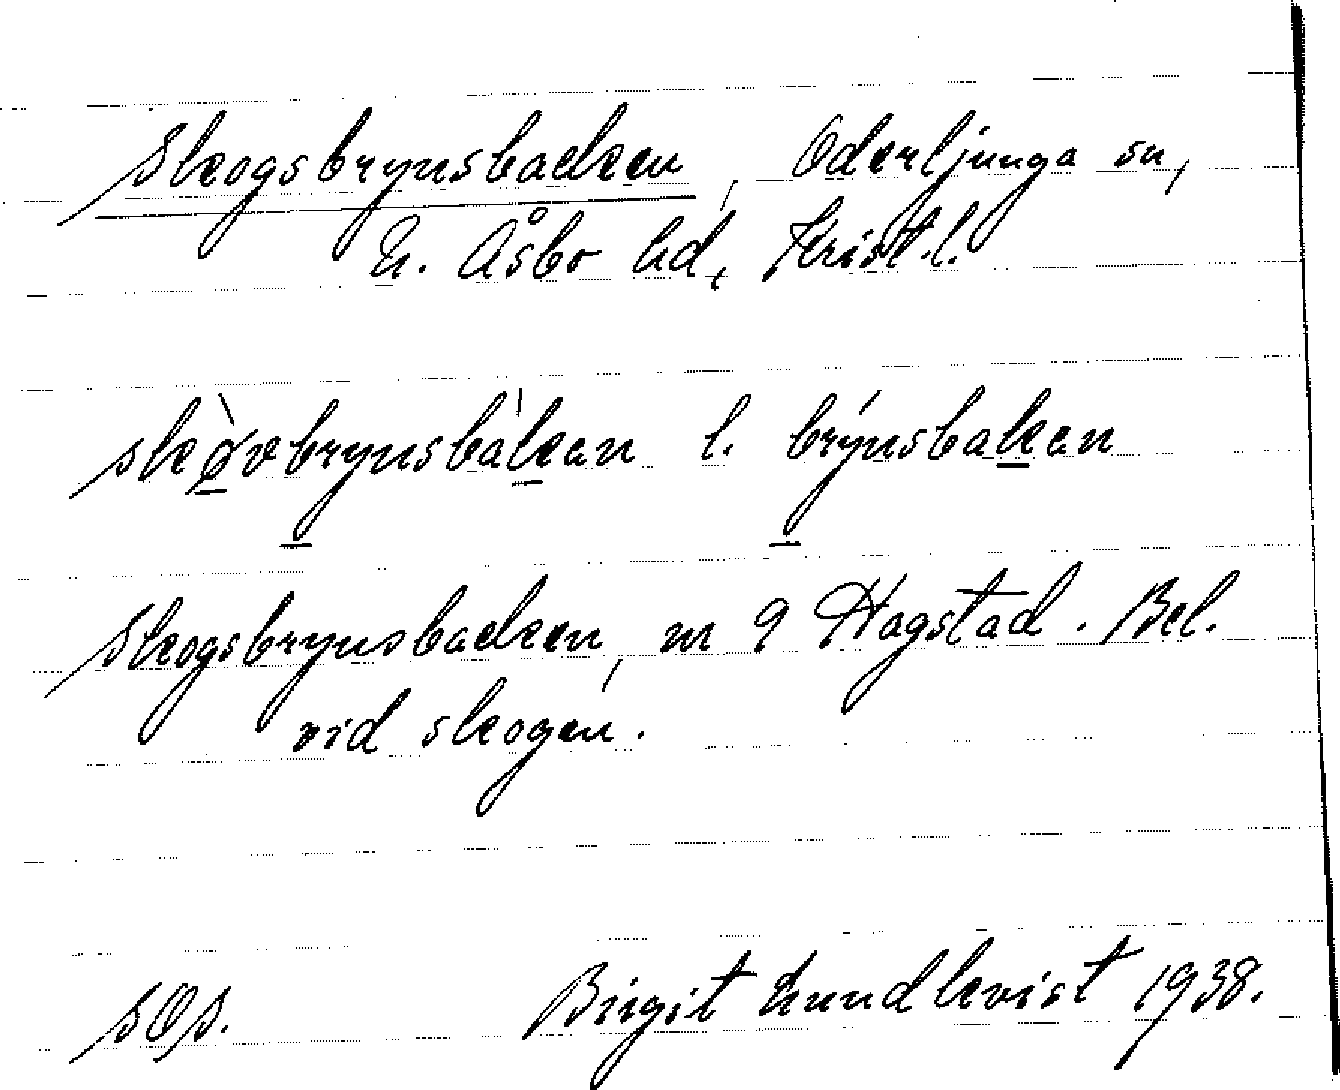 Skogsbrynsbacken, Oderljunga sn,
N. Åsbo hd, Krist.l.
skǫ̀vbrynsbàkan l. brýnsbakan
Skogsbrynsbacken, m 9 Hagstad. Bel.
vid skogen.
sOs. Birgit Lundkvist 1938.